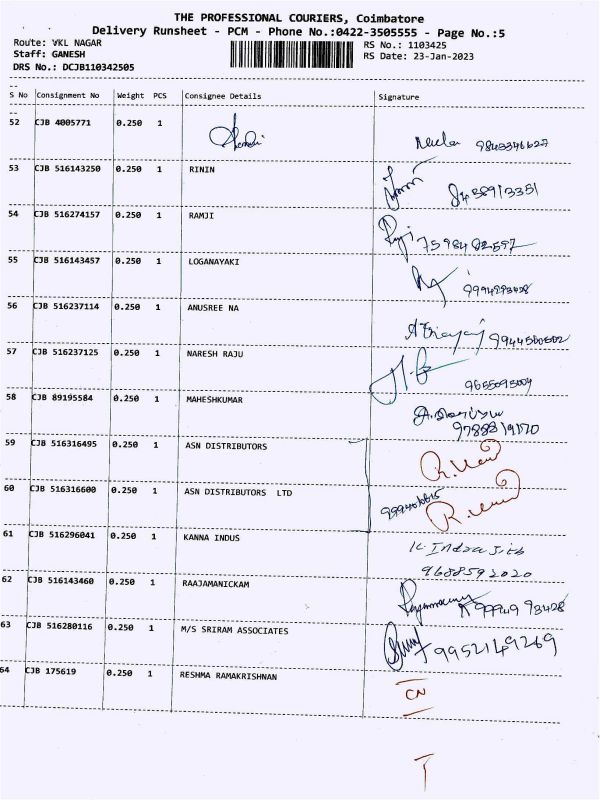 THE PROFESSIONAL COURIERS, Coimbatore
Delivery Runsheet - PCM - Phone No.:0422-3505555 - Page No.:5
Route: VKL NAGAR RS No.: 1103425
Staff: GANESH RS Date: 23-Jan-2023
DRS No.: DCJB110342505
S No Consignment No Weight PCS Consignee Details Signature
52 CJB 4005771 0.250 1
53 CJB 516143250 0.250 1 RININ
54 CJB 516274157 0.250 1 RAMJI 7598482597
55 CJB 516143457 0.250 1 LOGANAYAKI
56 CJB 516237114 0.250 1 ANUSREE NA
57 CJB 516237125 0.250 1 NARESH RAJU 9655095004
58 CJB 89195584 0.250 1 MAHESHKUMAR
59 CJB 516316495 0.250 1 ASN DISTRIBUTORS
60 CJB 516316600 0.250 1 ASN DISTRIBUTORS LTD
61 CJB 516296041 0.250 1 KANNA INDUS
9688592020
62 CJB 516143460 0.250 1 RAAJAMANICKAM 99949 93428
63 CJB 516280116 0.250 1 M/S SRIRAM ASSOCIATES 9952149269
64 CJB 175619 0.250 1 RESHMA RAMAKRISHNAN CN